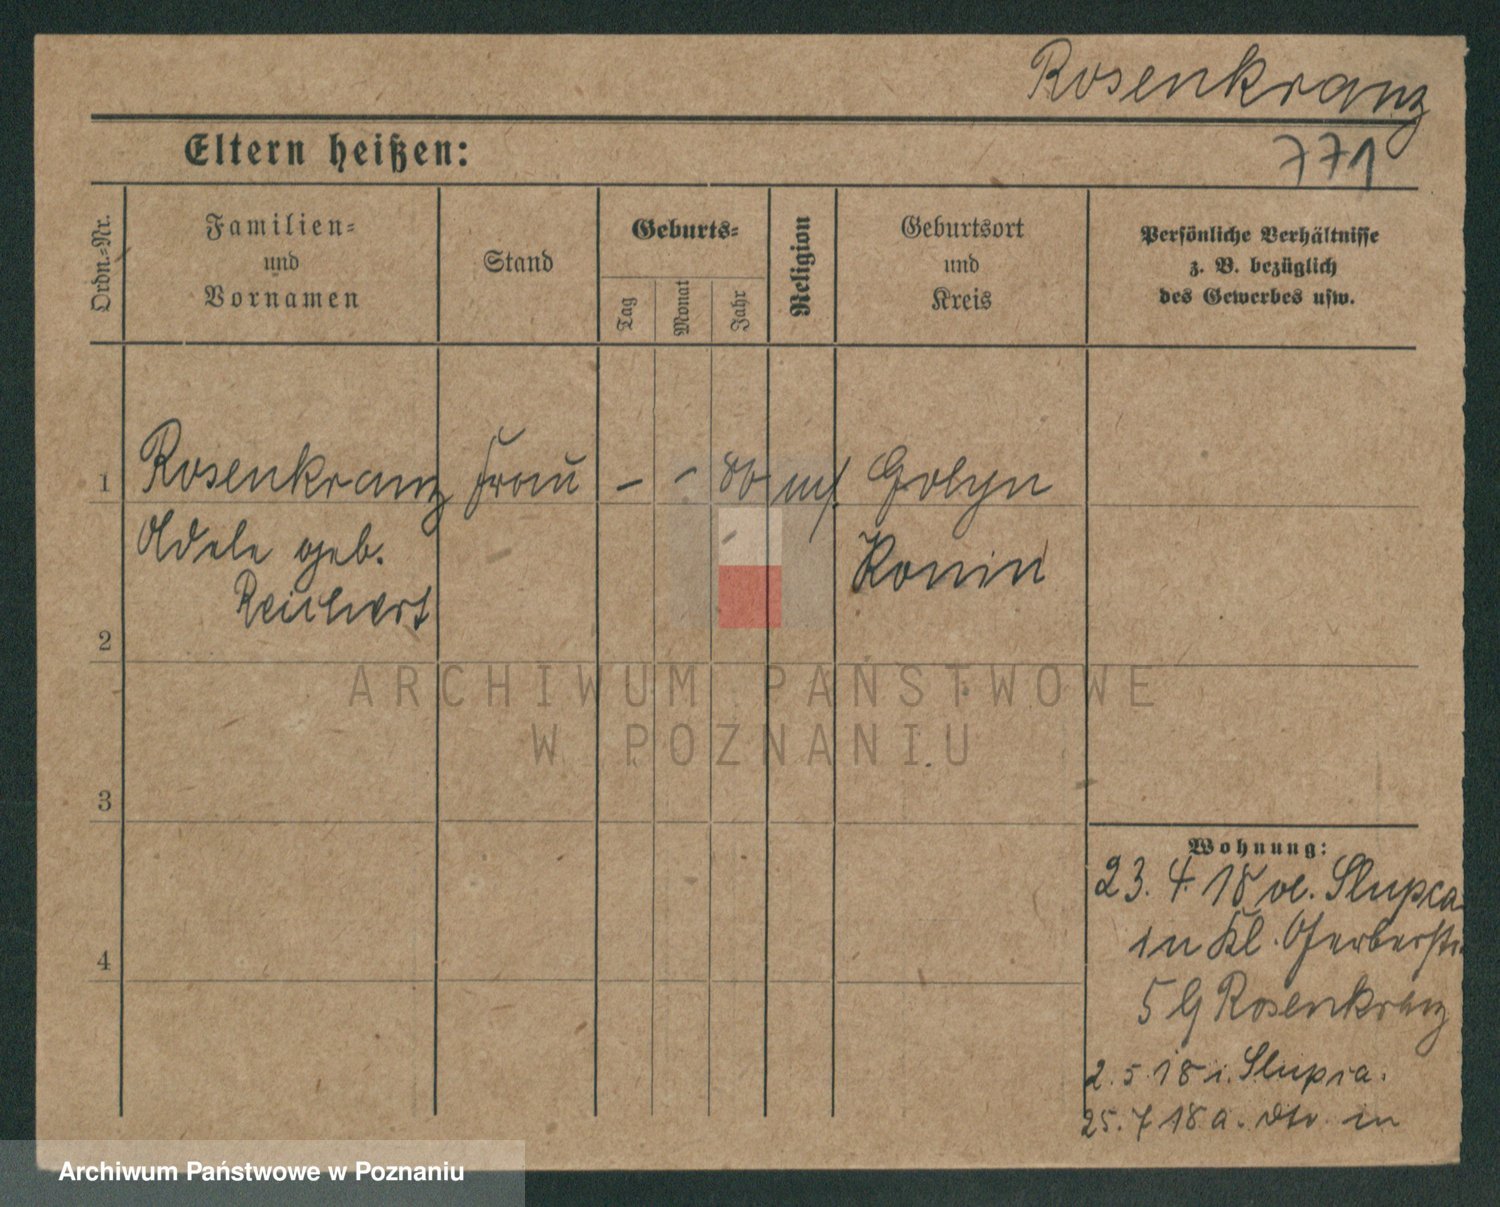 Rosenkranz
Eltern heißen:
771
Ordn.=Nr.
Familien=
und
Vornamen
Stand
Geburts=
Tag
Monat
Jahr
Religion
Geburtsort
und
Kreis
Persönliche Verhältnisse
z. B. bezüglich
des Gewerbes usw.
1 Rosenkranz Frau - - 86 Golyn
Adele geb. Konin
Reichert
2
3
4
Wohnung:
23. 4. 18 Slupca
in Kl. Gerberstr.
5 Rosenkranz
2. 5. 18 i. Slupca.
25. 7 18 a. dto. in
ARCHIWUM PAŃSTWOWE
W POZNANIU
Archiwum Państwowe w Poznaniu